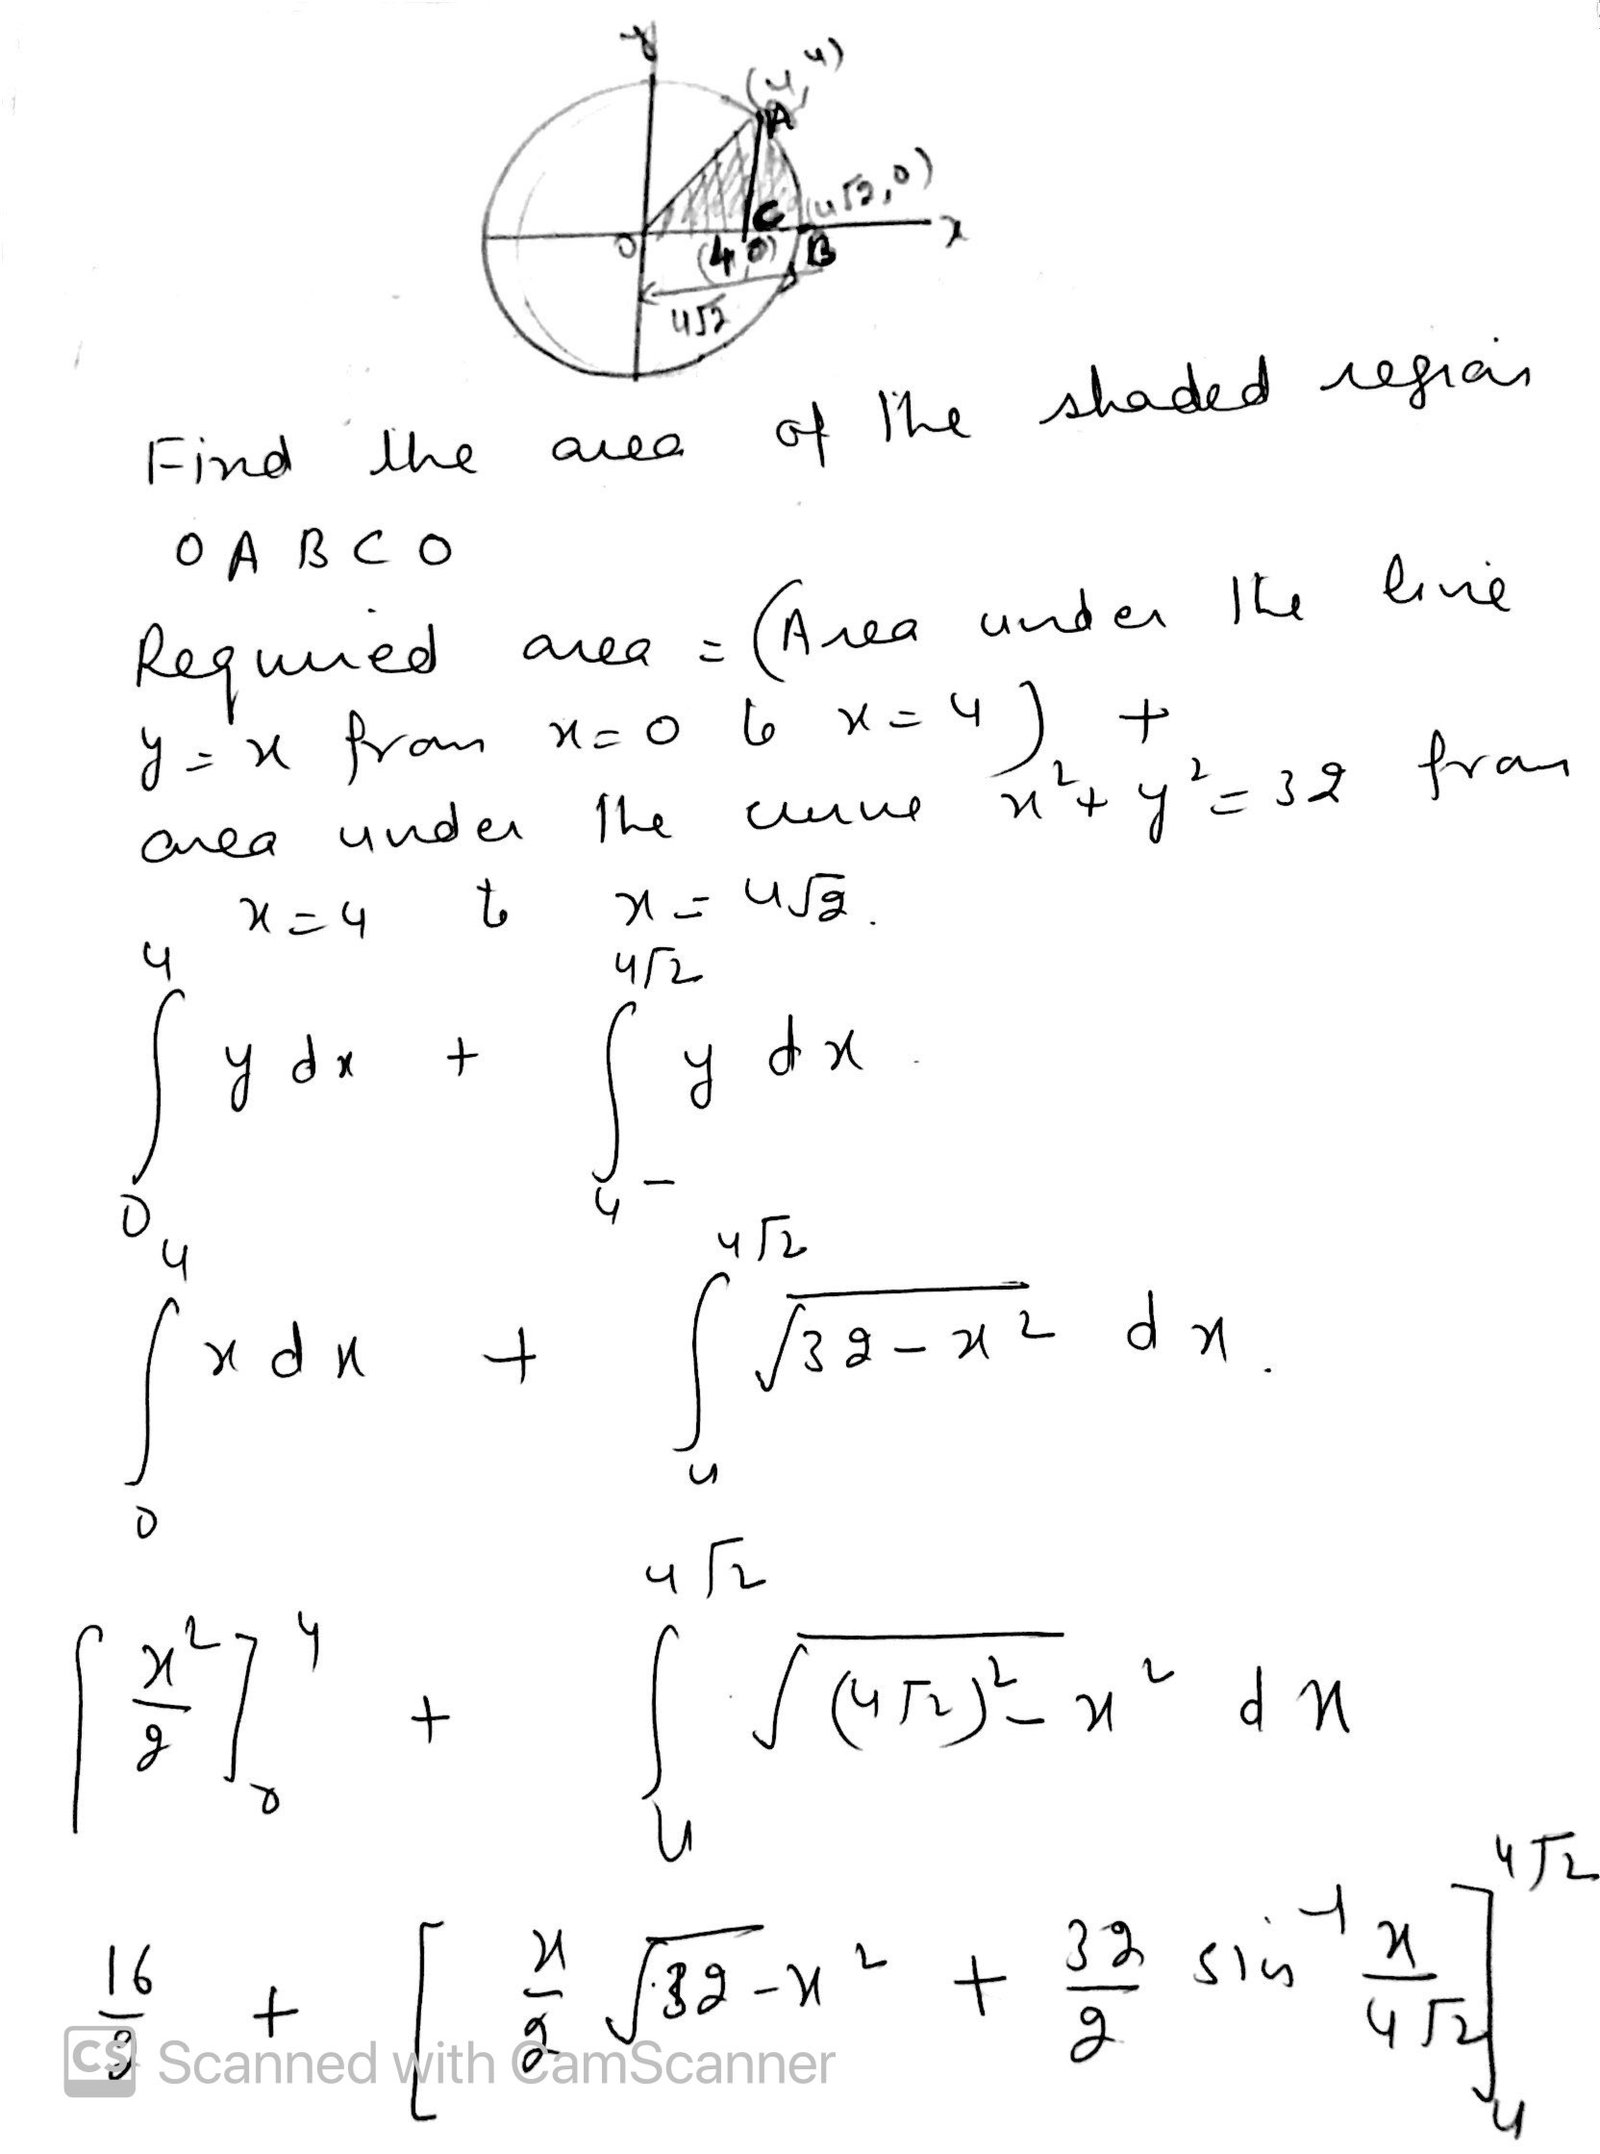 y
(4, 4)
A
(4√2, 0)
O
C
x
(4, 0)
B
4√2
Find the area of the shaded region
O A B C O
Required area = (Area under the line
y = x from x=0 to x=4) +
area under the curve x²+y²=32 from
x=4 to x=4√2.
∫₀⁴ y dx + ∫₄^{4√2} y dx
∫₀⁴ x dx + ∫₄^{4√2} √(32-x²) dx.
[x²/2]₀⁴ + ∫₄^{4√2} √((4√2)²-x²) dx
16/2 + [x/2 √(32-x²) + 32/2 sin⁻¹ x/(4√2)]₄^{4√2}
CS Scanned with CamScanner